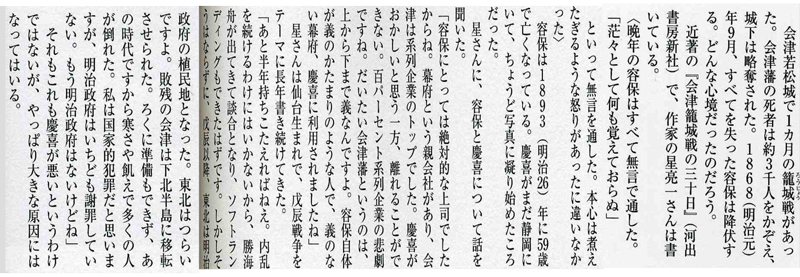 会津若松城で1カ月の籠城戦があっ
た。会津藩の死者は約3千人をかぞえ、
城下は略奪された。1868(明治元)
年9月、すべてを失った容保は降伏す
る。どんな心境だったのだろう。
近著の『会津籠城戦の三十日』(河出
書房新社)で、作家の星亮一さんは書
いている。
〈晩年の容保はすべて無言で通した。
「茫々として何も覚えておらぬ」
といって無言を通した。本心は煮え
たぎるような怒りがあったに違いなか
った〉
容保は1893(明治26)年に59歳
で亡くなっている。慶喜がまだ静岡に
いて、ちょうど写真に凝り始めたころ
だった。
星さんに、容保と慶喜について話を
聞いた。
「容保にとっては絶対的な上司でした
からね。幕府という親会社があり、会
津は系列企業のトップでした。慶喜が
おかしいと思う一方、離れることがで
きない。百パーセント系列企業の悲劇
ですね。だいたい会津藩というのは、
上から下まで義なんですよ。容保自体
が義のかたまりのような人で、義のな
い幕府、慶喜に利用されましたね」
星さんは仙台生まれで、戊辰戦争を
テーマに長年書き続けてきた。
「あと半年持ちこたえればねえ。内乱
を続けるわけにはいかないから、勝海
舟が出てきて談合となり、ソフトラン
ディングもできたはずです。しかしそ
うはならずに、戊辰以降、東北は明治
政府の植民地となった。東北はつらい
ですよ。敗残の会津は下北半島に移転
させられた。ろくに準備もできず、あ
の時代ですから寒さや飢えで多くの人
が倒れた。私は国家的犯罪だと思いま
すが、明治政府はいちども謝罪してい
ない。もう明治政府はないけどね」
それもこれも慶喜が悪いというわけ
ではないが、やっぱり大きな原因には
なってはいる。